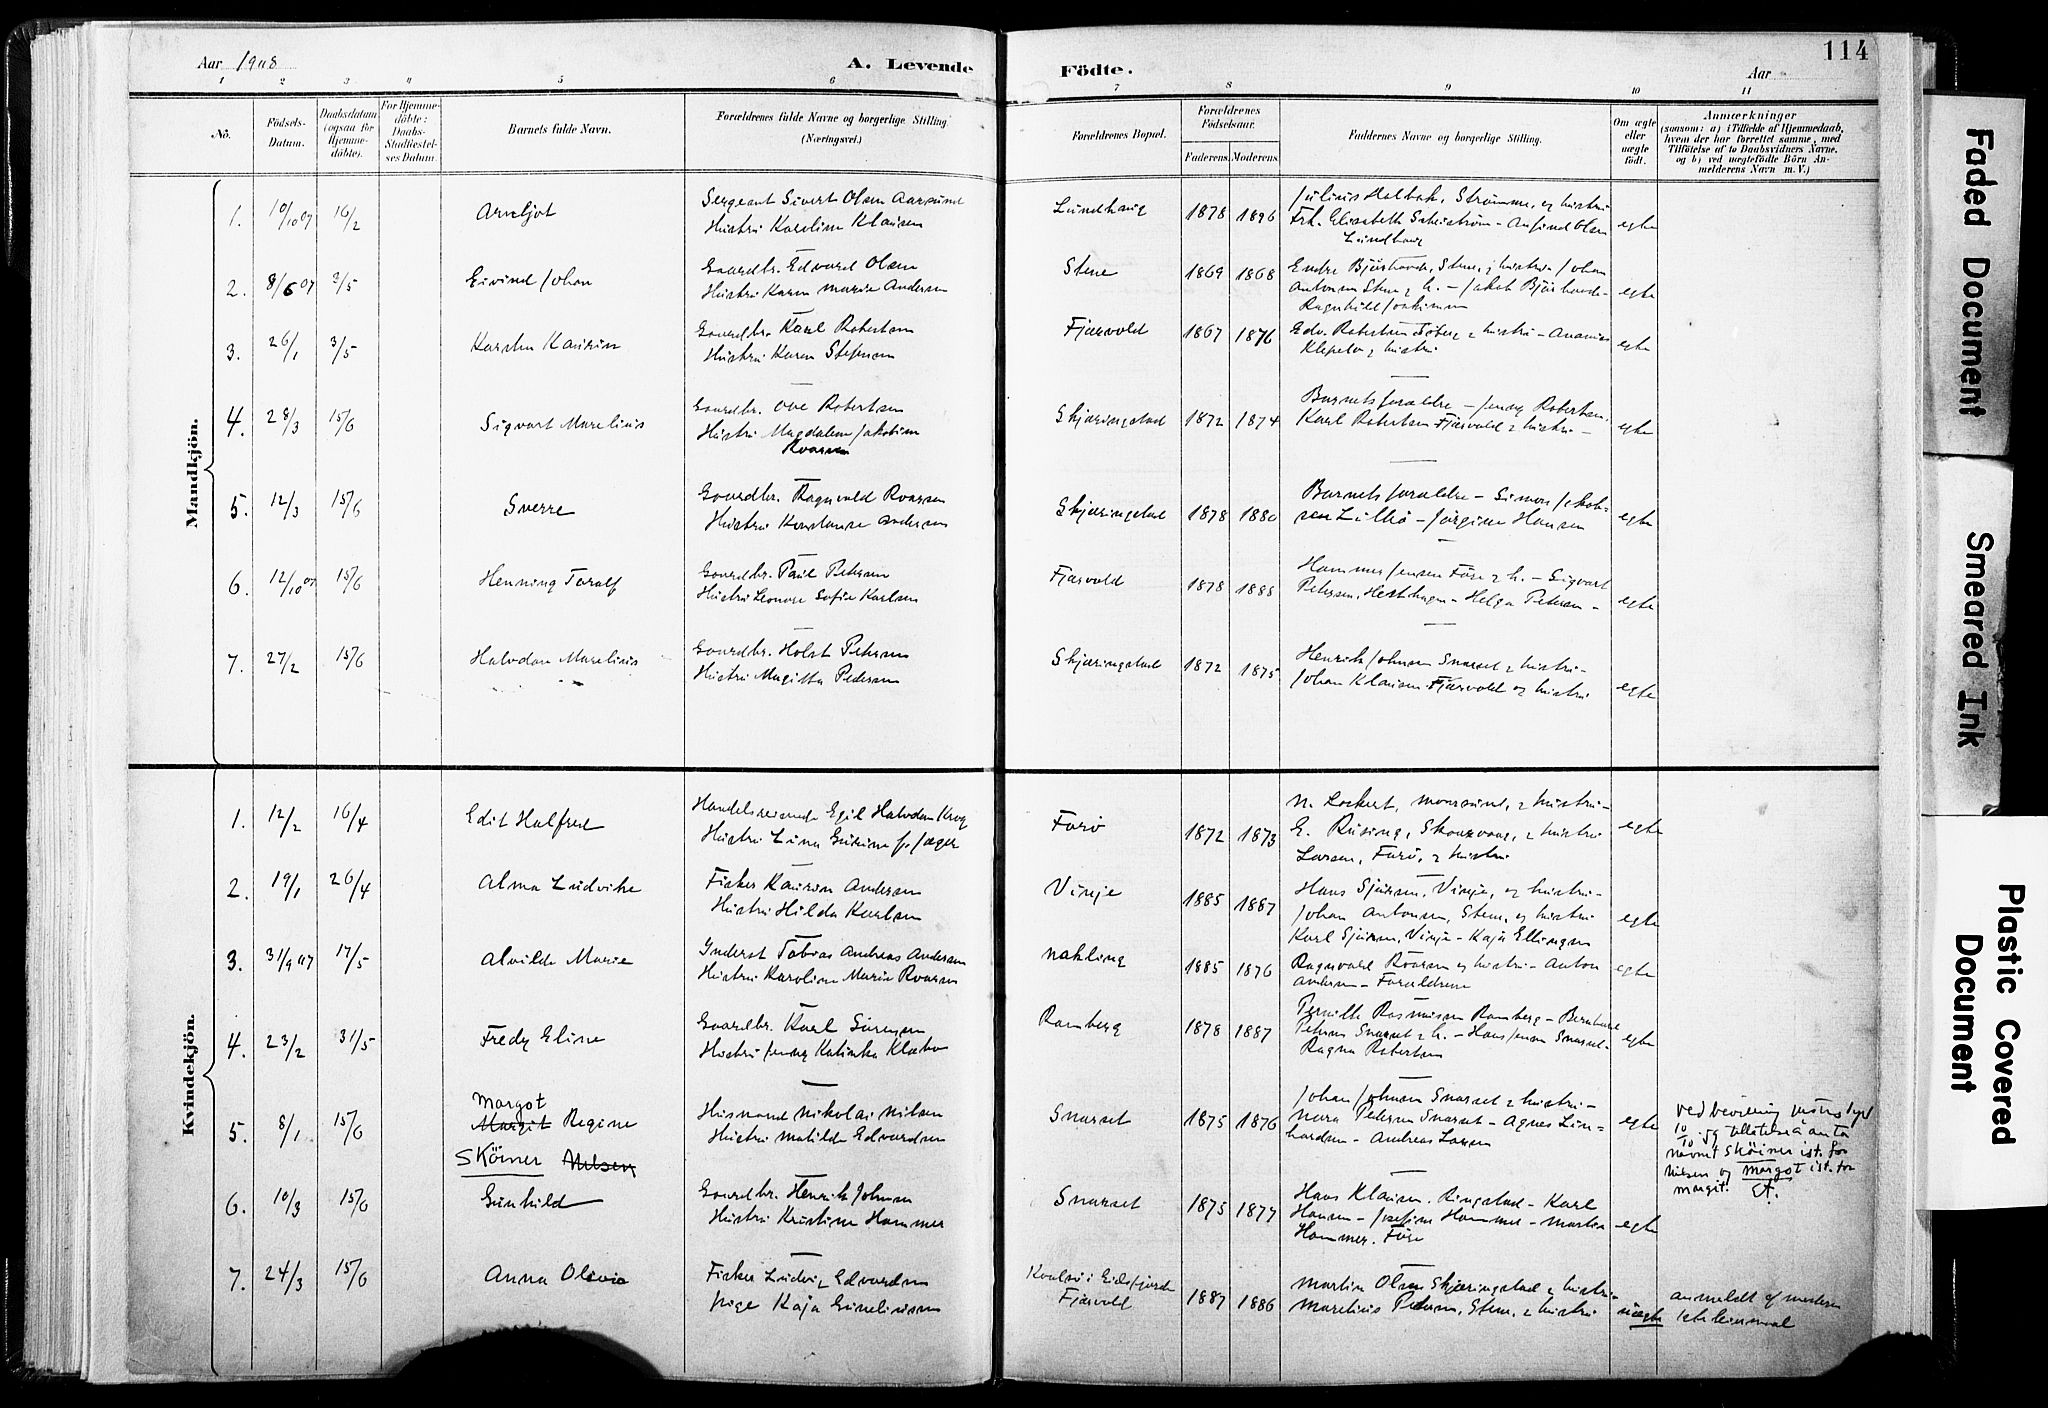 Aar 1908
A. Levende Födte.
Aar
114
1 2 3 4 5 6 7 8 9 10 11
Nö.
Födsels-
Datum.
Daabsdatum
(ogsaa for
Hjemme-
döbte).
For Hjemme-
döbte:
Daabs-
Stadfæstel-
ses Datum.
Barnets fulde Navn.
Forældrenes fulde Navne og borgerlige Stilling
(Næringsvei.)
Forældrenes Bopæl.
Forældrenes
Födselsaar.
Faderens. Moderens.
Faddernes Navne og borgerlige Stilling.
Om ægte
eller
uægte
födt.
Anmærkninger
(saasom: a) i Tilfælde af Hjemmedaab,
hvem der har forrettet samme, med
Tilföielse af to Daabsvidners Navne,
og b) ved uægtefödte Börn An-
melderens Navn m. V.)
Mandkjön.
1. 10/10 07 16/2 Arnljot
Sergeant Sivert Olsen Aarsund
Hustru Karoline Klausen
Lundhaug 1878 1896
Julius Halbak, Strømme, og hustru
Frk. Elisabeth - Arfind Olsen
Lundhaug
egte
2. 8/6 07 3/5 Eivind Johan
Gaardbr. Edvard Olsen
Hustru Karen Marie Andersen
Stene 1869 1868
Endre Stene, hustru Johan
Antonsen Stene & h. - Jakob
Ragnhild Joakimsen
egte
3. 26/1 3/5 Karsten Kaurin
Gaardbr. Karl Robertsen
Hustru Karen Stefensen
Fjærvold 1867 1876
Edv. Robertsen & hustru - Ananias
& hustru
egte
4. 28/3 15/6 Sigvart Marelius
Gaardbr. Ove Robertsen
Hustru Magdalene Jakobine
Roarsen
Skjæringstad 1872 1874
Barnets forældre - Jenny Robertsen
Karl Robertsen Fjærvold & hustru -
egte
5. 12/3 15/6 Sverre
Gaardbr. Ragnvald Roarsen
Hustru Konstanse Andersen
Skjæringstad 1878 1880
Barnets forældre - Simon Jakob-
sen - Jørgine Hansen
egte
6. 12/10 07 15/6 Henning Toralf
Gaardbr. Paul Petersen
Hustru Leonore Sofie Karlsen
Fjærvold 1878 1888
Hammer Jensen Føre & h. - Sigvart
Petersen, Hesthagen - Helga Petersen -
egte
7. 27/2 15/6 Halvdan Marelius
Gaardbr. Holst Petersen
Hustru Magitta Pedersen
Skjæringstad 1872 1875
Henrik Johnsen Snarset & hustru -
Johan Klausen Fjærvold og hustru
egte
Kvindekjön.
1. 12/2 16/4 Edit Halfred
Handelsreisende Egil Halvdan Krog
Hustru Lina Gurine f. Jæger
Farö 1872 1873
N. Lockert, & hustru -
E. Rusing, & hustru
Larsen, Farö, & hustru
egte
2. 19/1 26/4 Alma Ludvike
Fisker Kaurin Andersen
Hustru Hilda Karlsen
Vinje 1885 1887
Hans Sjursen, Vinje, og hustru -
Johan Antonsen, Stene, og hustru
Karl Sjursen, Vinje - Kaja Ellingsen
egte
3. 31/9 07 17/5 Alvilde Marie
Inderst Tobias Andreas Andersen
Hustru Karoline Marie Roarsen
Nakling 1885 1876
Ragnvald Roarsen og hustru - Anton
Andersen - Forældrene
egte
4. 23/2 31/5 Fredy Eline
Gaardbr. Karl Sörensen
Hustru Jenny Katinka Klæbo
Ramberg 1878 1887
Pernille Rasmussen Ramberg - Bernhard
Petersen Snarset & h. - Hans Jensen Snarset -
Ragna Robertsen
egte
5. 8/1 15/6 Margot
Margit Regine
Sköiner Nilsen
Husmand Nikolai Nilsen
Hustru Matilde Edvardsen
Snarset 1875 1876
Johan Johnsen Snarset & hustru -
Nora Petersen Snarset - Agnes Lin-
hardsen - Andreas Larsen
egte
ved bevilling
tillatelse å anta
navnet Sköiner ist. for
Nilsen og Margot ist. for
Margit.
6. 10/3 15/6 Gunhild
Gaardbr. Henrik Johnsen
Hustru Kristine Hammer
Snarset 1875 1877
Hans Klausen, Ringstad - Karl
Hansen - Josefine Hammer - Martin
Hammer, Føre
egte
7. 24/3 15/6 Anna Olivia
Fisker Ludvig Edvardsen
Pige Kaja Emeliussen
Kvalsö i Eidsfjorden
Fjærvold 1887 1886
Martin Olsen Skjæringstad & hustru -
Marelius Petersen, Stene, & hustru
uægte
anmeldt af moderen
1ste leiermaal
Faded Document
Smeared Ink
Plastic Covered
Document